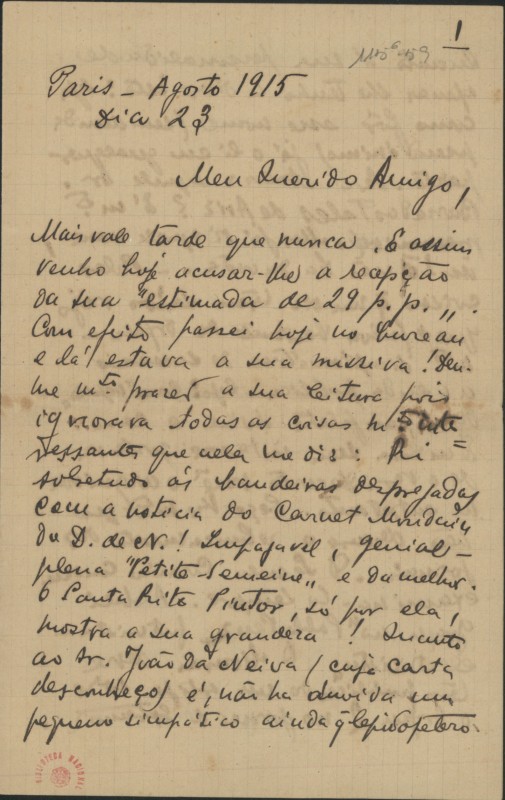 1
1156-59
Paris - Agosto 1915
Dia 23
Meu Querido Amigo,
Mais vale tarde que nunca. E assim
venho hoje acusar-lhe a recepção
da sua "estimada de 29 p. p.,,.
Com efeito passei hoje no bureau
e lá estava a sua missiva! Deu-
me mto prazer a sua leitura pois
ignorava todas as coisas mto inte
ressantes que nela me diz: Ri =
sobretudo ás bandeiras despregadas
com a noticia do Carnet Mondain
du D. de N.! Impagavel, genial -
plena "Petite-Semaine,, e da melhor.
O Santa Rita Pintor, só por ela,
mostra a sua grandeza! Quanto
ao Sr. João da Neiva (cuja carta
desconheço) é, não ha duvida um
pequeno simpático ainda q̃ lepidoptero
BIBLIOTECA NACIONAL